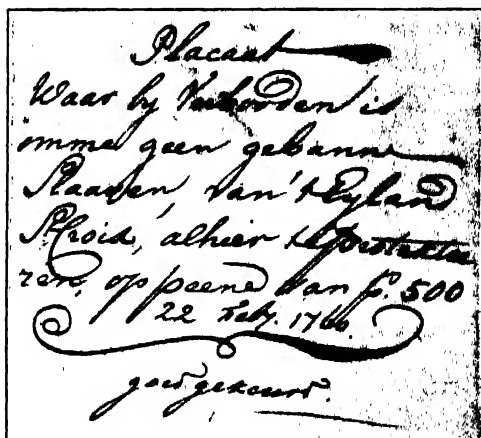 Placaat
Waar by Verboorden is
omme geen gebanne
Slaaven, van 't Eyland
St. Croix, alhier te protecteeren
ren, op poene van p. 500
22 Feby. 1760.
goed gekeurd.